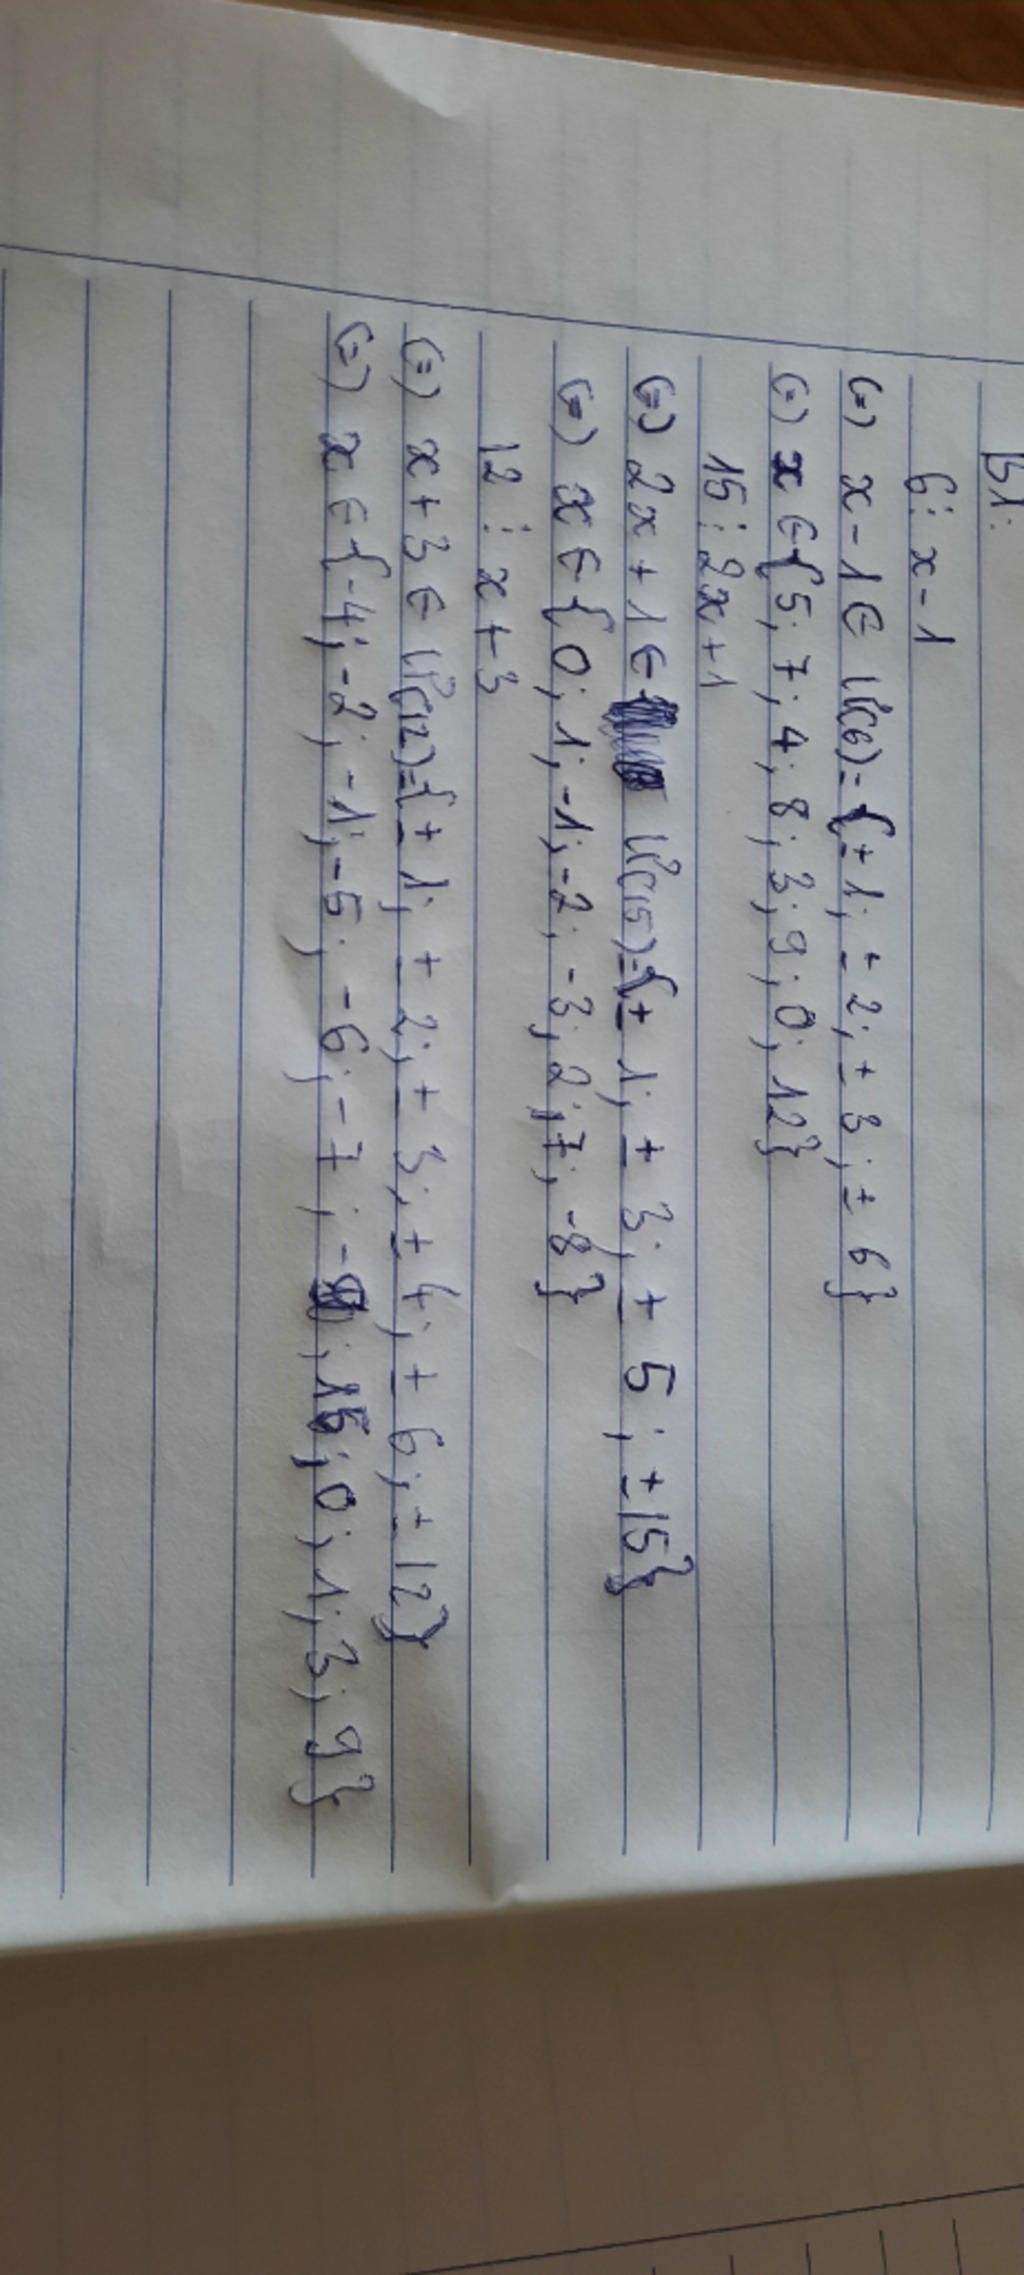 6 ⋮ x - 1
(=) x - 1 ∈ Ư(6) = {± 1; ± 2; ± 3; ± 6}
(=) x ∈ {5; 7; 4; 8; 3; 9; 0; 12}
15 ⋮ 2x + 1
(=) 2x + 1 ∈ Ư(15) = {± 1; ± 3; ± 5; ± 15}
(=) x ∈ {0; 1; -1; -2; -3; 2; 7; -8}
12 ⋮ x + 3
(=) x + 3 ∈ Ư(12) = {± 1; ± 2; ± 3; ± 4; ± 6; ± 12}
(=) x ∈ {-4; -2; -1; -5; -6; -7; ; 15; 0; 1; 3; 9}